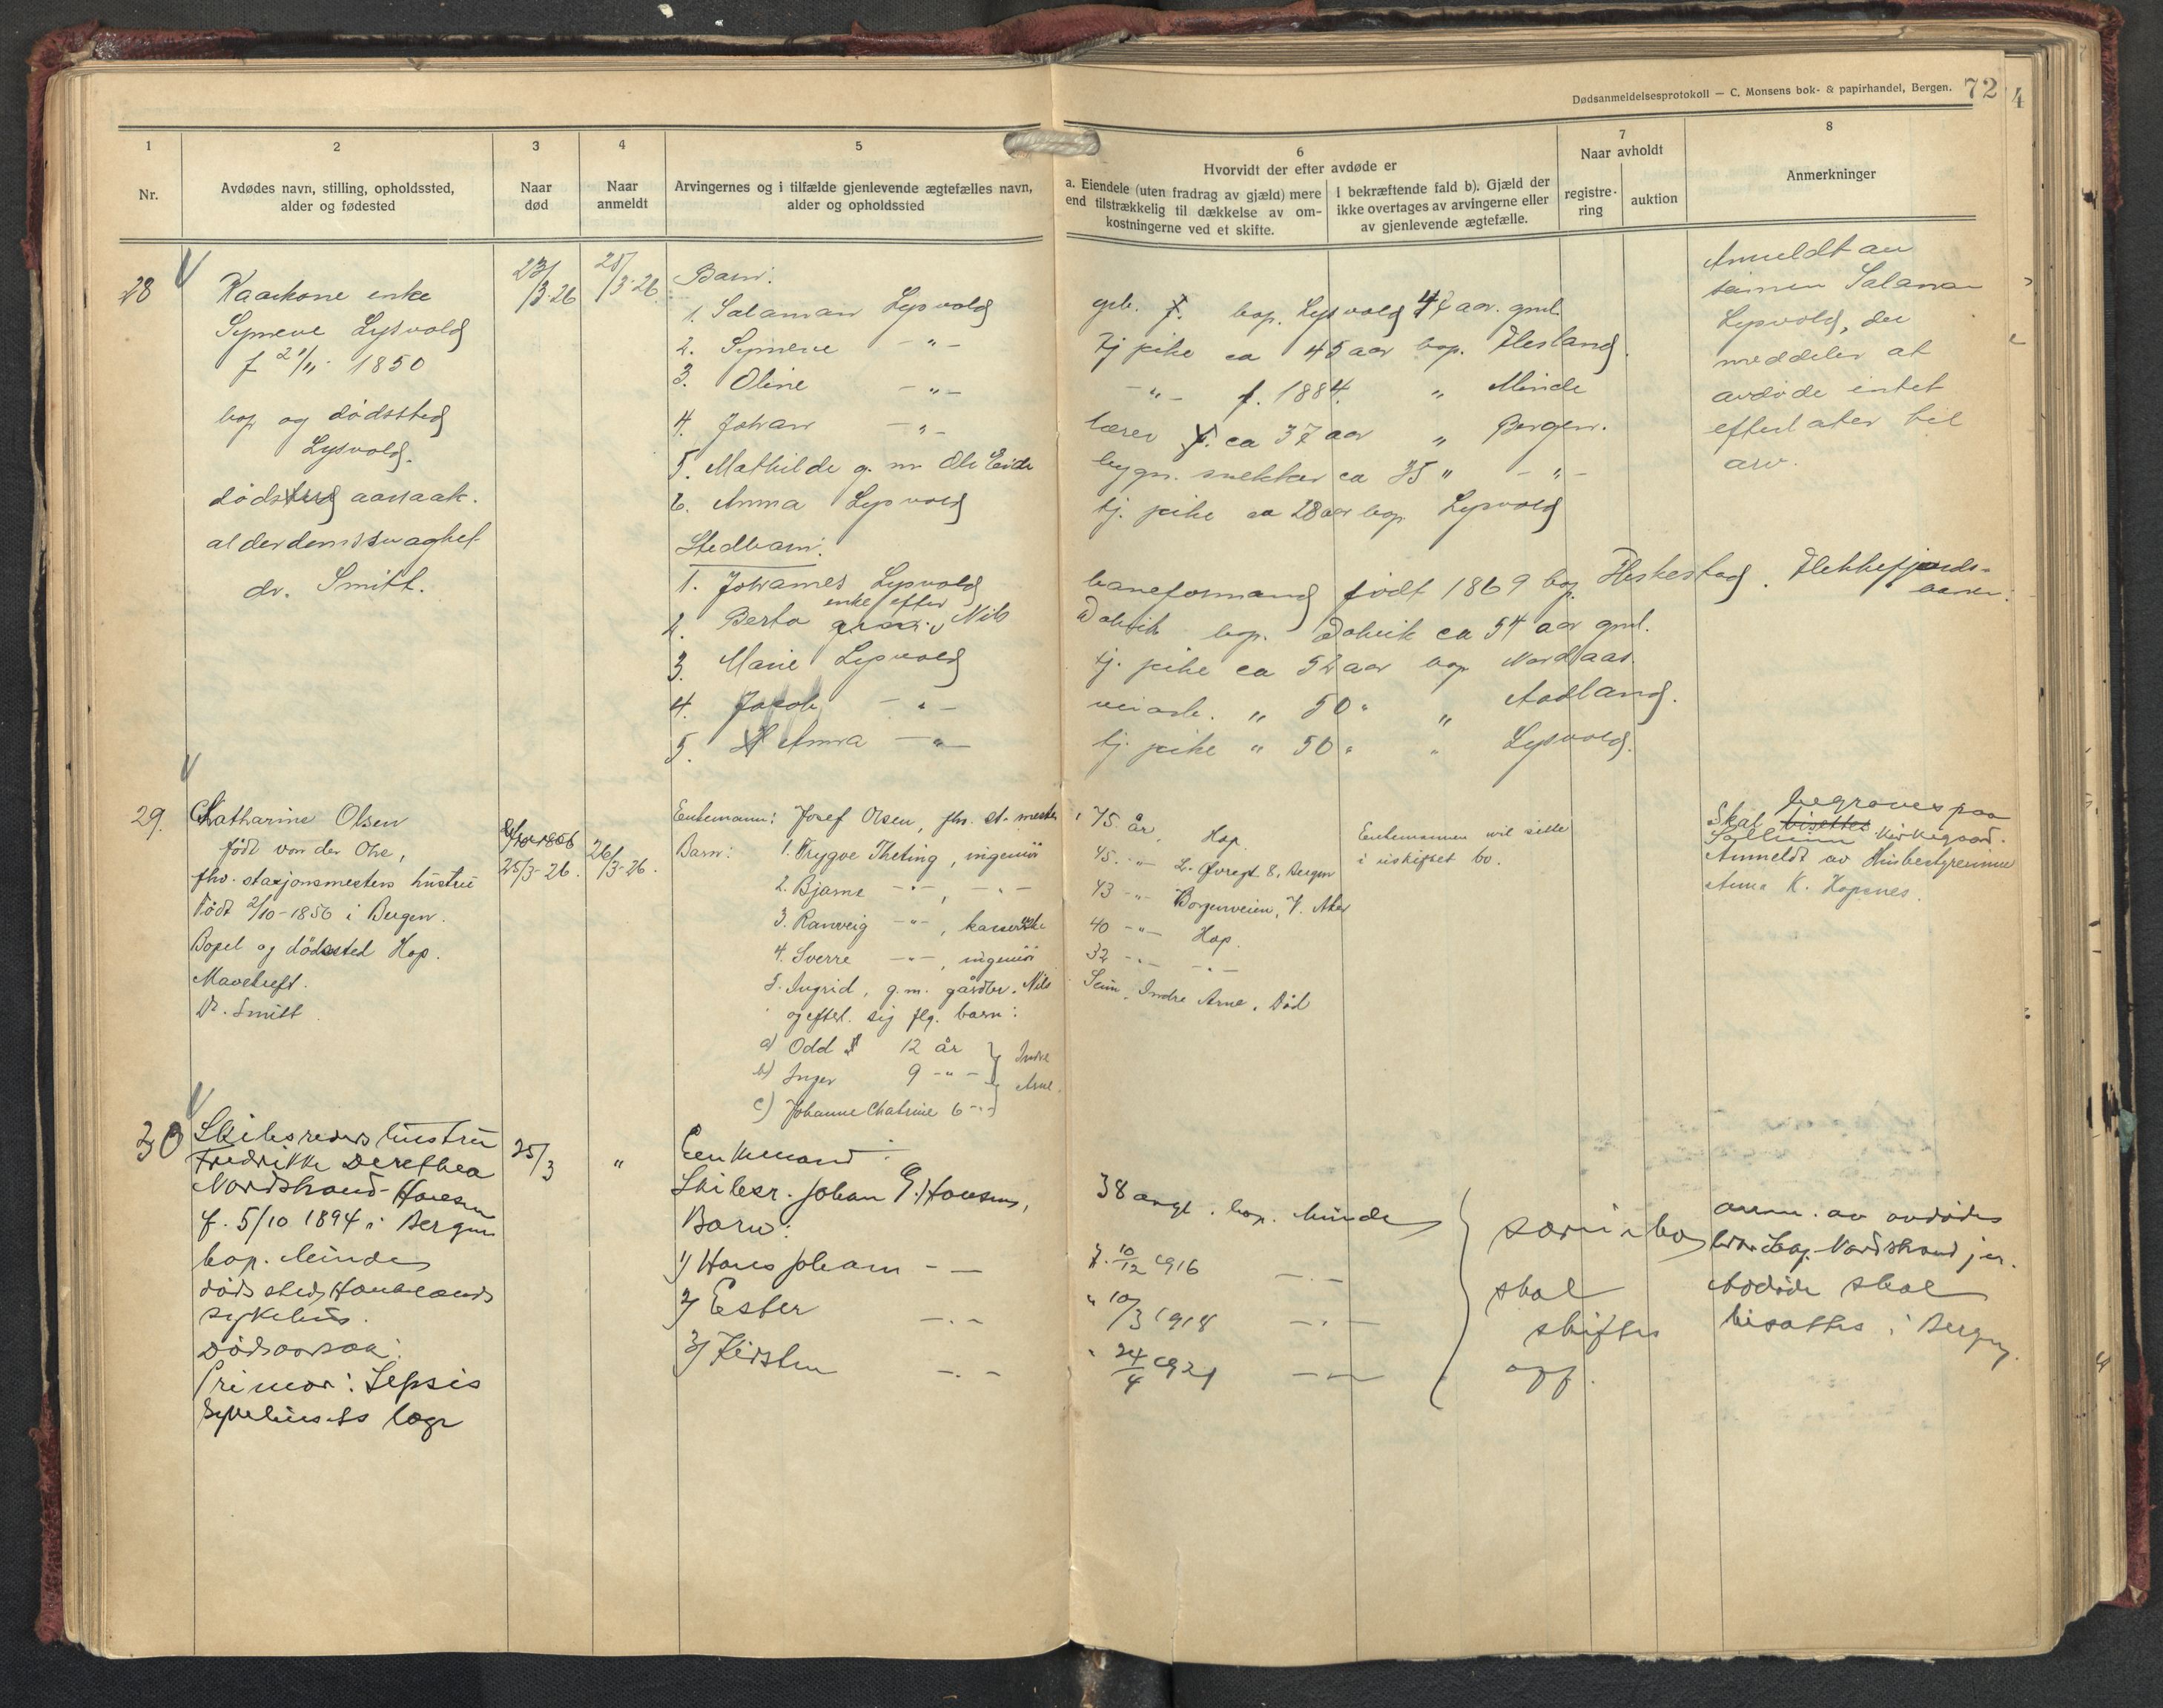 Dødsanmeldelsesprotokoll — C. Monsens bok- & papirhandel, Bergen. 72
4
1
Nr.
2
Avdødes navn, stilling, opholdssted,
alder og fødested
3
Naar
død
4
Naar
anmeldt
5
Arvingernes og i tilfælde gjenlevende ægtefælles navn,
alder og opholdssted
6
Hvorvidt der efter avdøde er
a. Eiendele (uten fradrag av gjæld) mere
end tilstrækkelig til dækkelse av om-
kostningerne ved et skifte.
I bekræftende fald b). Gjæld der
ikke overtages av arvingerne eller
av gjenlevende ægtefælle.
7
Naar avholdt
registre-
ring
auktion
8
Anmerkninger
28
Kaarkone enke
Synneve Lysvold
f 1850
bop og dødssted
Lysvold.
døds aarsaak.
alderdomssvaghet
dr. Smitt.
23/3-26
25/3-26
Barn:
1. Salaman Lysvold
2. Synneve -"-
3. Oline -"-
4. Johan -"-
5. Mathilde g. m. Ole Eide
6. Anna Lysvold
Stedbarn:
1. Johannes Lysvold
2. Berta enke efter Nils
3. Marie Lysvold
4. Jakob -"-
5. Anna -"-
bop. Lysvold 47 aar. gml.
tj pike ca 45 aar bop. Flesland.
-"- f. 1884. " Minde
lærer ca 37 aar " Bergen.
bygn. snekker ca 35 " -"-
tj. pike ca 28 aar bop Lysvold
baneformand født 1869 bop. Heskestad. Flekkefjords-
banen.
Dolvik bop. Dolvik ca 54 aar gml.
tj. pike ca 52 aar bop Nordaas.
veiarb. " 50 " " Aadland.
tj. pike " 50 " " Lysvold.
Anmeldt av
sønnen Salaman
Lysvold, der
meddeler at
avdøde intet
efterlater til
arv.
29.
Chatharine Olsen
født von der Ohe,
fhv. stasjonsmesters hustru
Født 2/10-1856 i Bergen.
Bopel og dødssted Hop.
Mavekreft.
Dr. Smitt
25/3-26.
26/3-26.
Enkemann: Josef Olsen, fhv. st. mester
Barn: 1. Trygve Theting, ingeniør
2. Bjarne -"-, -"-
3. Ranveig -"-, kasserske
4. Sverre -"-, ingeniør
5. Ingrid, g.m. gårdbr. Nils
og efterl. sig flg. barn:
a) Odd 12 år
b) Inger 9 -"-
c) Johanne Chatrine 6 -"-
Indre
Arne.
75 år, Hop.
45 -"- L. Øvregt 8, Bergen
43 -"- Borgenveien, V. Aker
40 -"- Hop.
32 -"- -"-
Seim, Indre Arne. Død
Enkemannen vil sitte
i uskiftet bo.
begraves paa
Skal bisettes kirkegaard.
Anmeldt av Husbestyrerinne
Anna K. Hopsnes.
30
Skibsreders hustru
Fredrikke Dorethea
Nordstrand-Hansen
f. 5/10 1894 i Bergen
bop. Minde
dødssted Haukelands
sykehus.
Dødsaarsak:
Primær: Sepsis
Sykehusets læge
25/3
"
Enkemand:
Skibsr. Johan E. Hansen,
Barn:
1) Hans Johan - —
2) Ester -"-
3) Kirsten -"-
38 aar gl. bop. Minde
f. 10/12 1916 -"-
" 10/3 1918 -"-
" 24/4 1921 -"-
særeiebo
skal
skiftes
off.
anm. av avdødes
bror Nordstrand jr.
Avdøde skal
bisættes i Bergen.